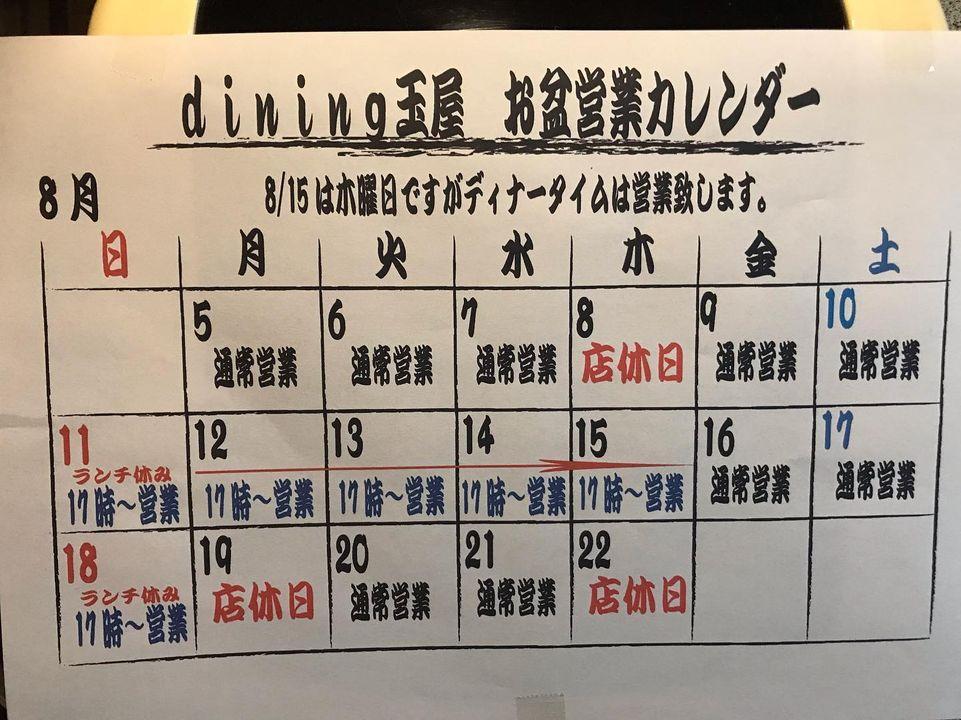 dining玉屋 お盆営業カレンダー
8月
8/15は木曜日ですがディナータイムは営業致します。
日 月 火 水 木 金 土
5 6 7 8 9 10
通常営業 通常営業 通常営業 店休日 通常営業 通常営業
11 12 13 14 15 16 17
ランチ休み
17時～営業 17時～営業 17時～営業 17時～営業 17時～営業 通常営業 通常営業
18 19 20 21 22
ランチ休み
17時～営業 店休日 通常営業 通常営業 店休日